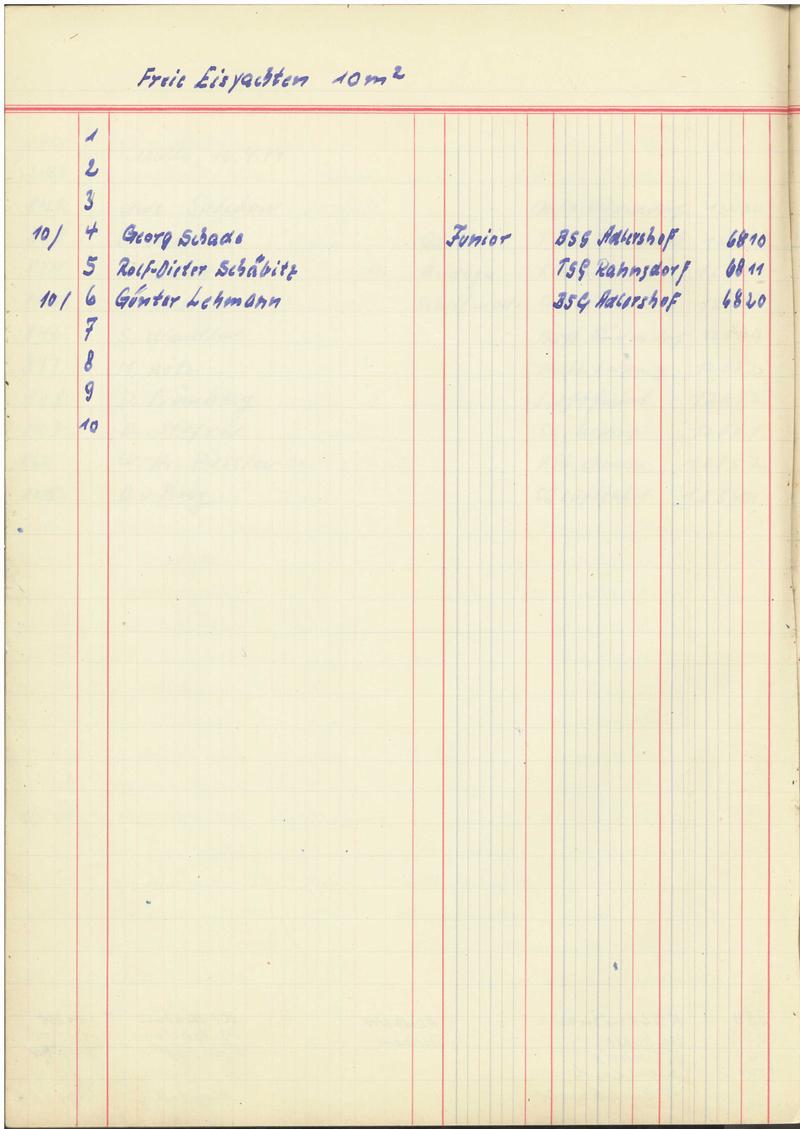 Freie Eisyachten 10m²
1
2
3
10/ 4 Georg Schade Junior BSG Adlershof 6810
5 Rolf-Dieter Schäbitz TSG Rahnsdorf 6811
10/ 6 Günter Lehmann BSG Adlershof 6820
7
8
9
10